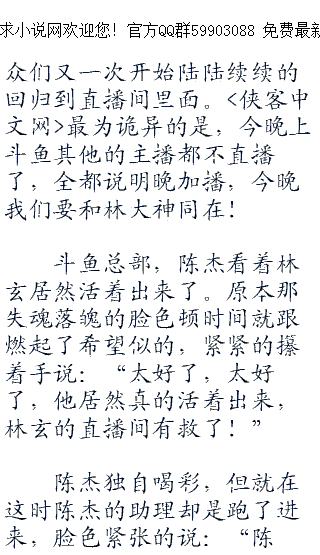 求小说网欢迎您！官方QQ群59903088 免费最新
众们又一次开始陆陆续续的
回归到直播间里面。<侠客中
文网>最为诡异的是，今晚上
斗鱼其他的主播都不直播
了，全都说明晚加播，今晚
我们要和林大神同在！
斗鱼总部，陈杰看着林
玄居然活着出来了。原本那
失魂落魄的脸色顿时间就跟
燃起了希望似的，紧紧的攥
着手说：“太好了，太好
了，他居然真的活着出来，
林玄的直播间有救了！”
陈杰独自喝彩，但就在
这时陈杰的助理却是跑了进
来，脸色紧张的说：“陈